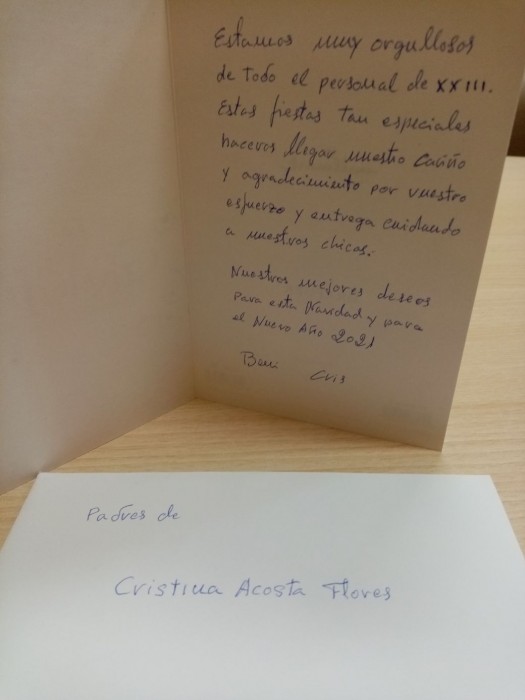 Estamos muy orgullosos
de todo el personal de XXIII.
Estas fiestas tan especiales
haceros llegar nuestro cariño
y agradecimiento por vuestro
esfuerzo y entrega cuidando
a nuestros chicos.
Nuestros mejores deseos
para esta Navidad y para
el Nuevo Año 2021
Beni Cris
Padres de
Cristina Acosta Flores